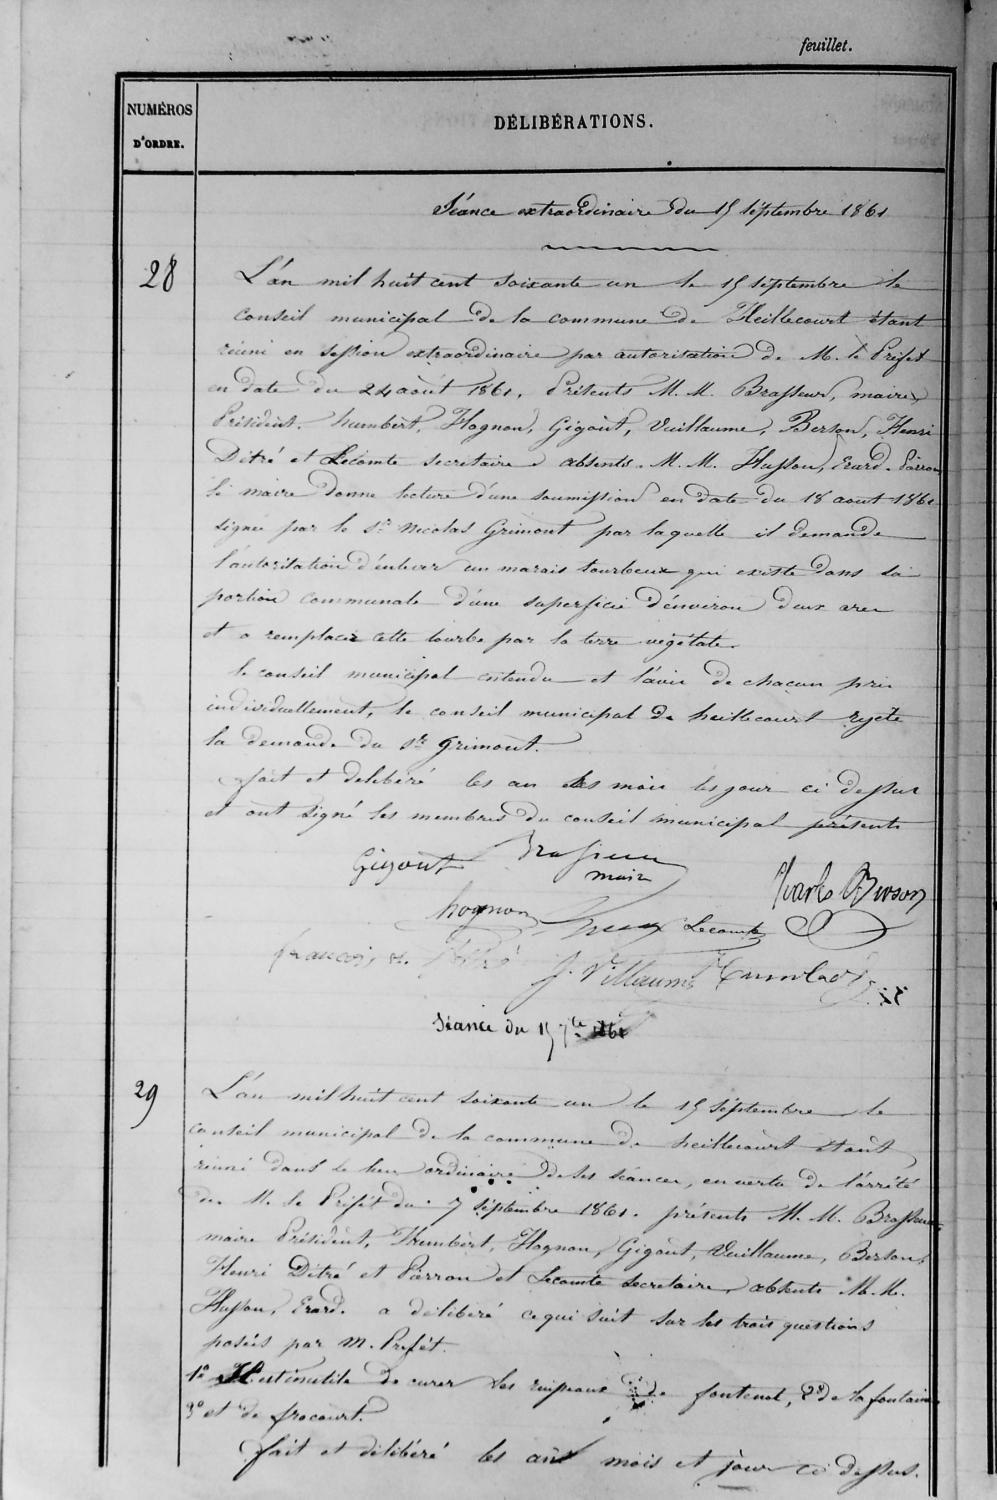 feuillet.
NUMÉROS
D'ORDRE.
DÉLIBÉRATIONS.
Séance extraordinaire du 15 septembre 1861
28
L'an mil huit cent soixante un le 15 septembre le
conseil municipal de la commune de Heillecourt étant
réuni en session extraordinaire par autorisation de M. le Préfet
en date du 24 août 1861, Présents M. M. Brasseur, maire
Président, humbert, Hognon, Gigout, Vuillaume, Berson, Henri
Ditré et Lecomte secretaire absents M. M. Husson, Erard. Pierron
le maire donne lecture d'une soumission en date du 18 aout 1861
signée par le Sr Nicolas Grimont par laquelle il demande
l'autorisation d'enlever un marais tourbeux qui existe dans sa
portion communale d'une superficie d'environ deux ares
et a remplacer cette tourbe par la terre végétale.
le conseil municipal entendu et l'avis de chacun pris
individuellement, le conseil municipal de heillecourt rejete
la demande du Sr Grimont.
fait et delibéré les an des mois les jour ci dessus
et ont signé les membres du conseil municipal présents
Gigout Brasseur
maire
Charles Berson
hognon Lecomte
françois J. Villaume
Séance du 15 7bre 1861
29
L'an mil huit cent soixante un le 15 septembre le
conseil municipal de la commune de heillecourt étant
réuni dans le lieu ordinaire de ses séances, en vertu de l'arrêté
de M. le Préfet du 7 septembre 1861. présents M. M. Brasseur
maire Président, Humbert, Hognon, Gigout, Vuillaume, Berson,
Henri Ditré et Pierron et Lecomte secretaire, absents M. M.
Husson, Erard. a délibéré ce qui suit sur les trois questions
posées par M. Préfet.
1° Il est inutile de curer les ruisseaux de fontenot, 2° de la fontaine
3° et de frocourt.
fait et délibéré les an mois et jour ci dessus.